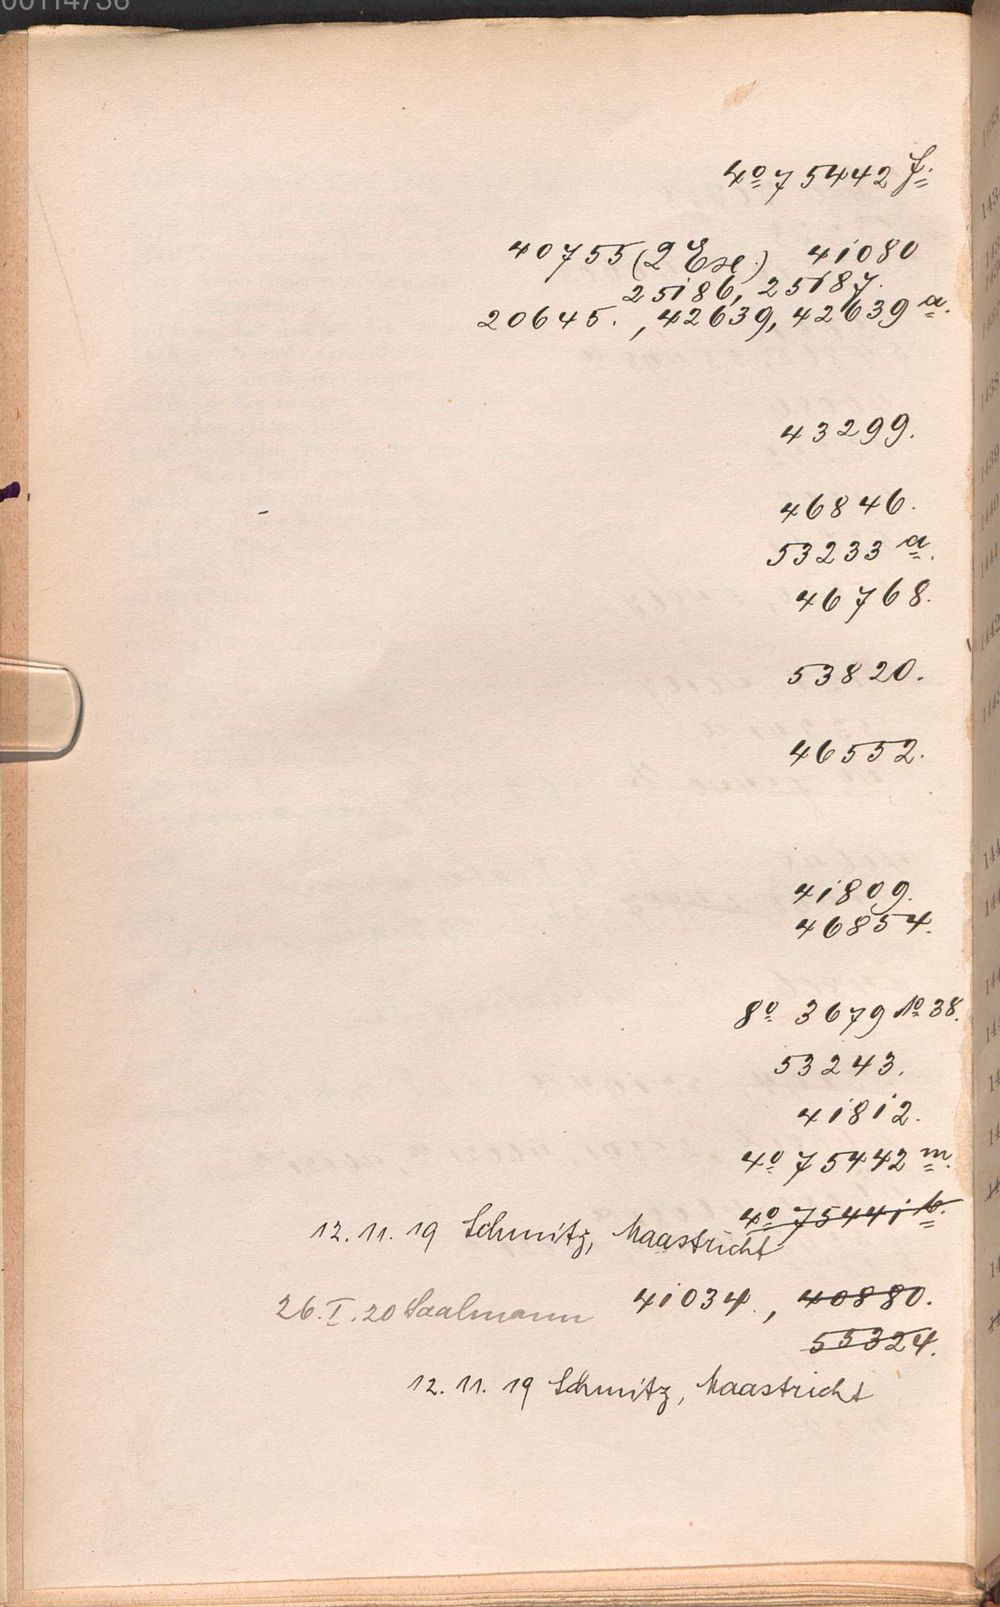 00114736
4º 75442 f.
40755 (2 Exe.) 41080
25186, 25187.
20645. , 42639, 42639 a.
43299.
46846.
53233 a.
46768.
53820.
46552.
41809.
46854.
8º 3679 Nº 38.
53243.
41812.
4º 75442 m.
4º 75441 b.
12. 11. 19 Schmitz, Maastricht
26. I. 20 Saalmann 41034. , 40880.
55324.
12. 11. 19 Schmitz, Maastricht